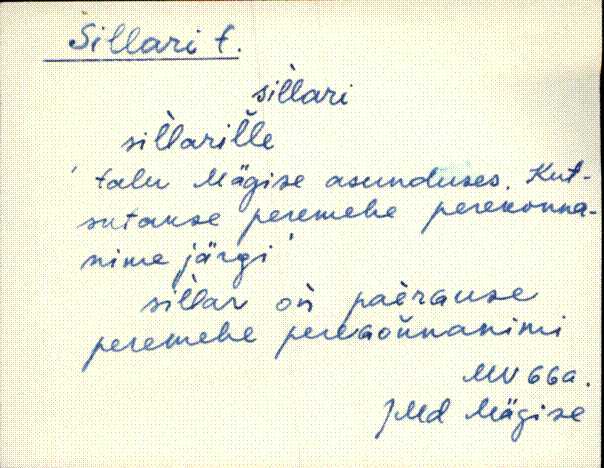 Sillari t.
sìllari
sìllariĺle
' talu Mägise asunduses. Kut-
sutakse peremehe perekonna-
nime järgi '
sìllar oǹ paèrause
peremehe
MV 66a.
JMd Mägise